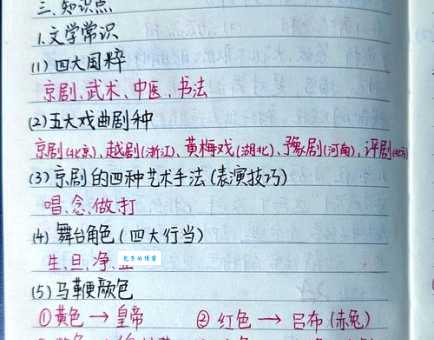 三、知识点
1.文学常识
(1)四大国粹
京剧、武术、中医、书法
(2)五大戏曲剧种
京剧(北京)、越剧(浙江)、黄梅戏(湖北)、豫剧(河南)、评剧
(3)京剧的四种艺术手法(表演技巧)
唱、念、做、打
(4)舞台角色(四大行当)
生、旦、净、
(5)马鞭颜色
①黄色→皇帝 ②红色→吕布(赤兔)